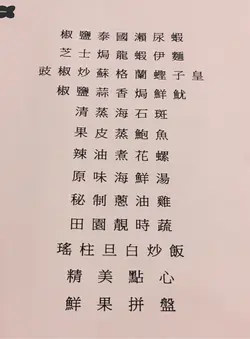 椒鹽泰國瀨尿蝦
芝士焗龍蝦伊麵
豉椒炒蘇格蘭蟶子皇
椒鹽蒜香焗鮮魷
清蒸海石斑
果皮蒸鮑魚
辣油煮花螺
原味海鮮湯
秘制蔥油雞
田園靚時蔬
瑤柱旦白炒飯
精美點心
鮮果拼盤